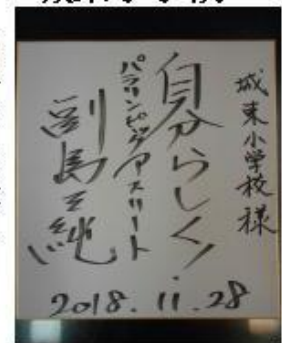 城東小学校様
自分らしく!
パラリンピックアスリート
副島正純
2018.11.28